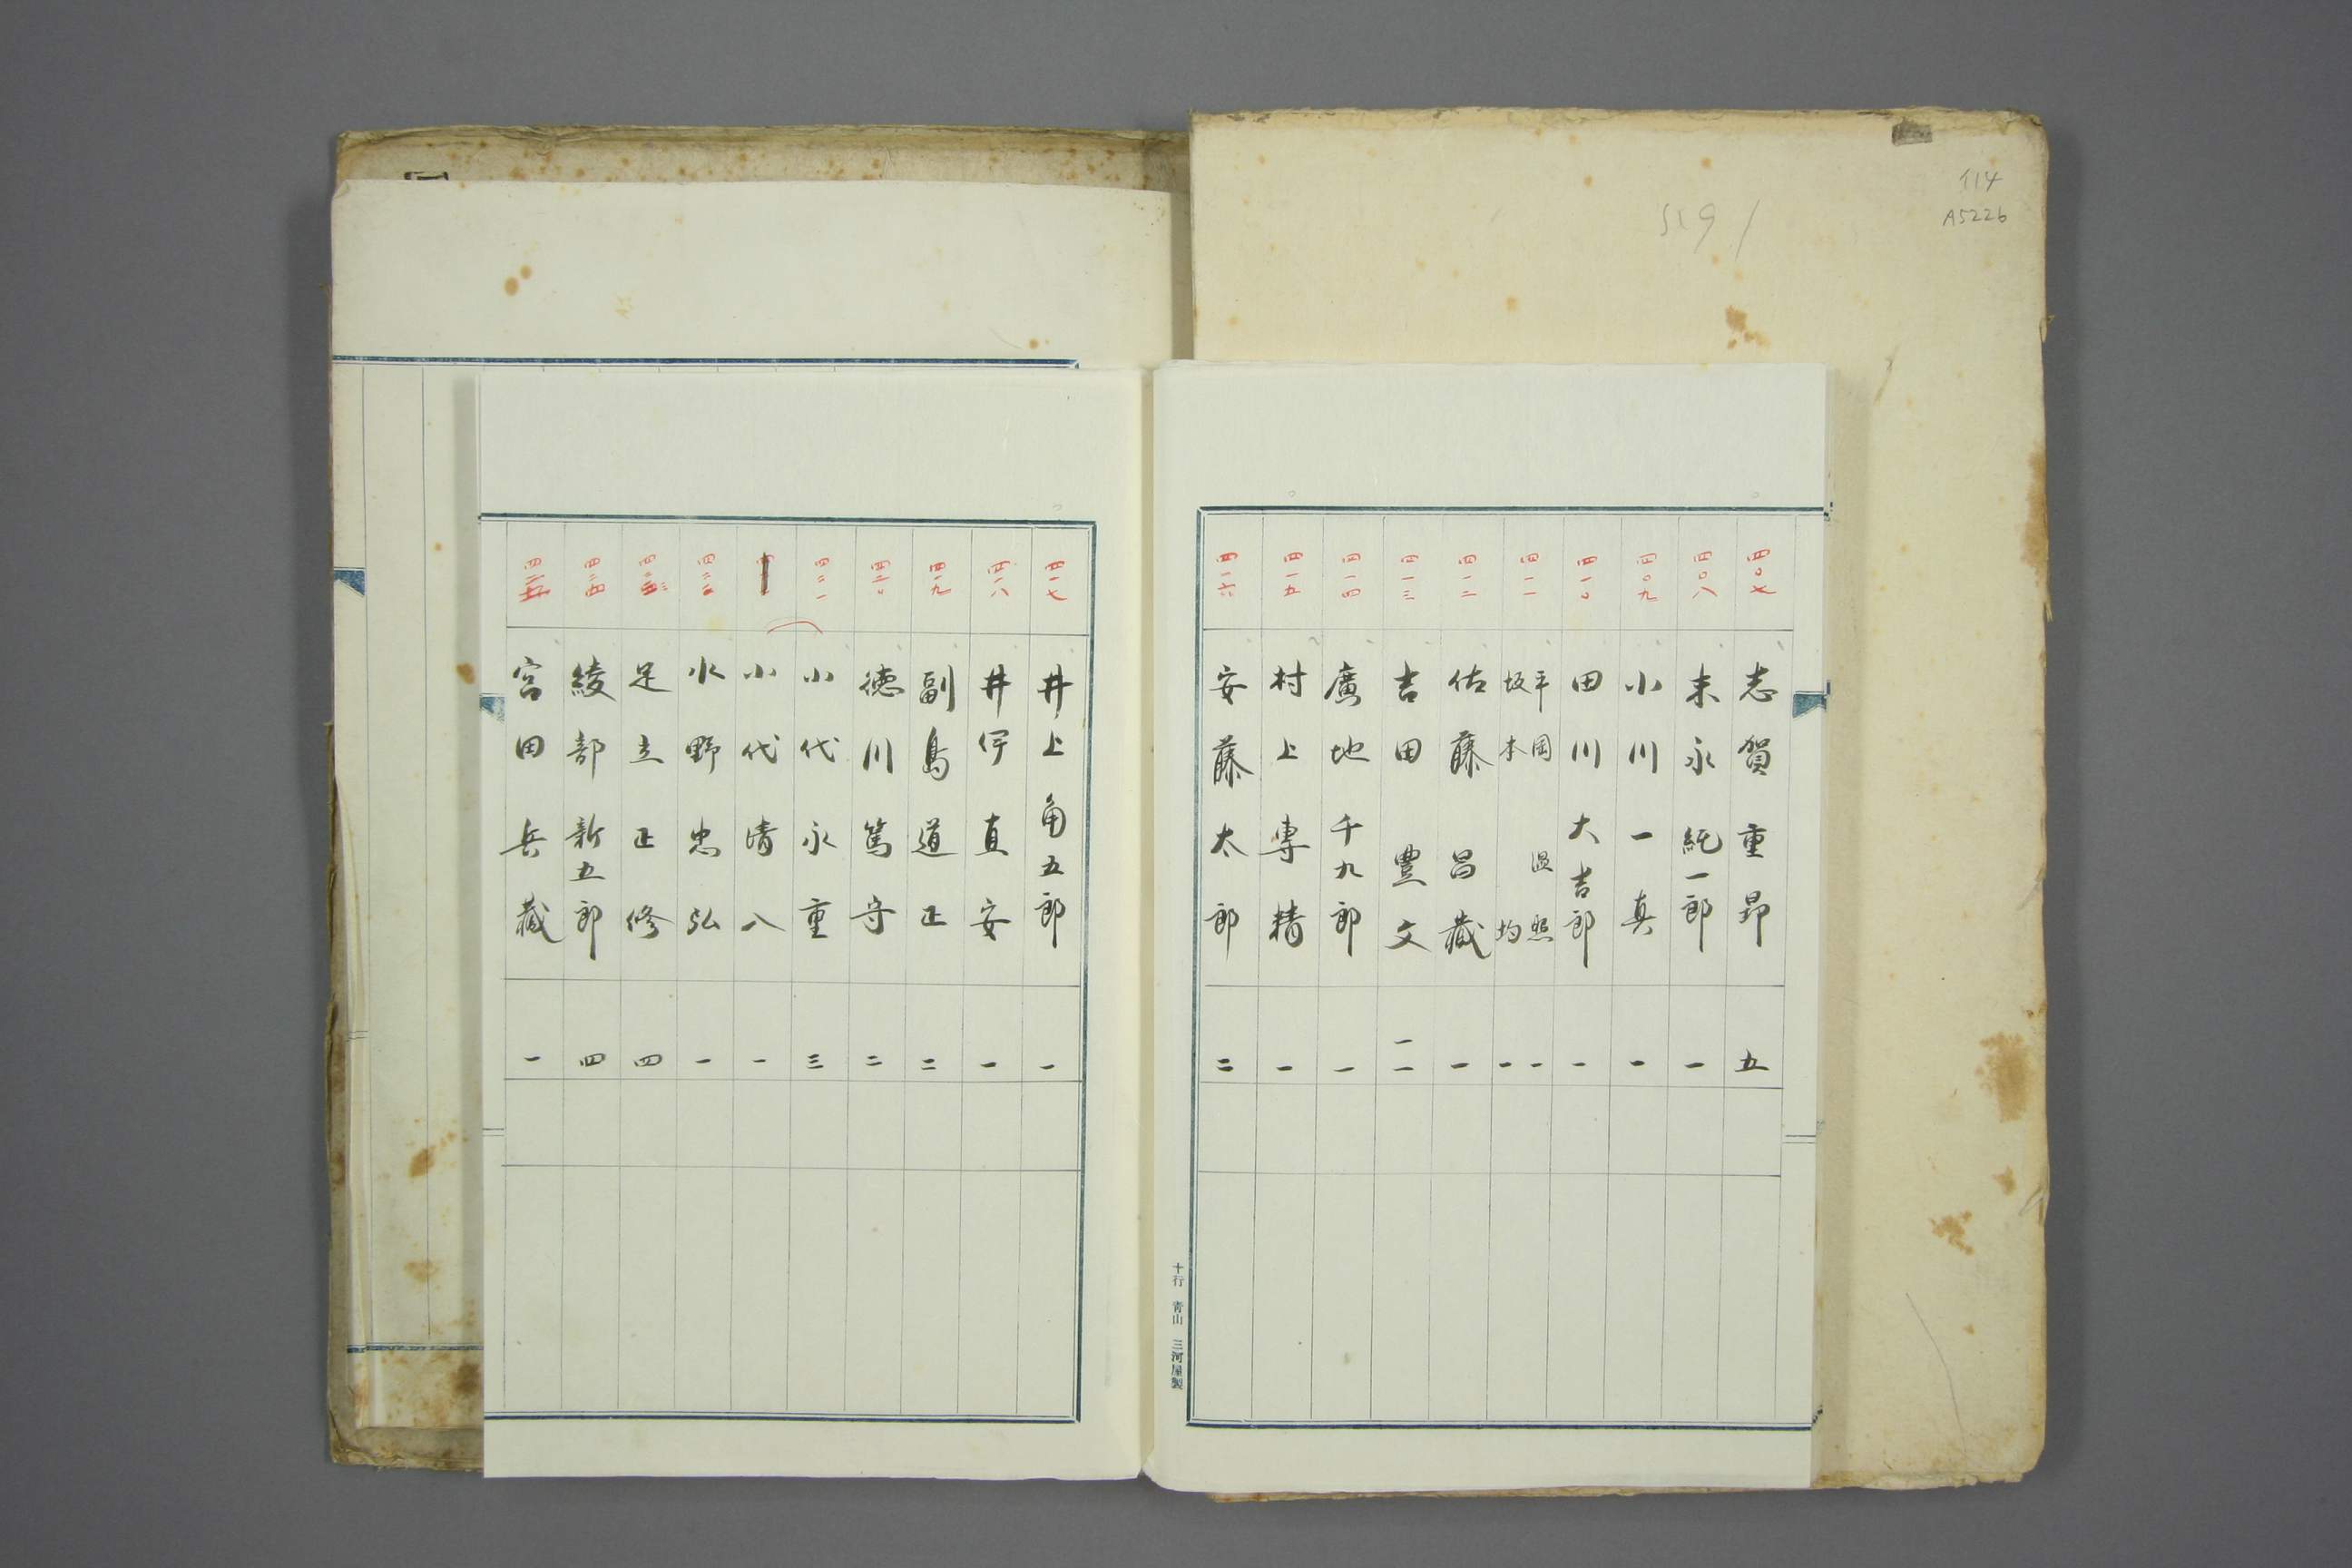 114
A5226
四〇七 志賀重昂 五
四〇八 末永純一郎 一
四〇九 小川一真 一
四一〇 田川大吉郎 一
四一一 平岡凞 一
坂本均 一
四一二 佐藤昌蔵 一
四一三 吉田豊文 一一
四一四 廣地千九郎 一
四一五 村上専精 一
四一六 安藤太郎 二
十行 青山 三河屋製
四一七 井上角五郎 一
四一八 井伊直安 一
四一九 副島道正 二
四二〇 徳川篤守 二
四二一 小代永重 三
小代清八 一
四二二 水野忠弘 一
四二三 足立正修 四
四二四 綾部新五郎 四
四二五 宮田兵蔵 一